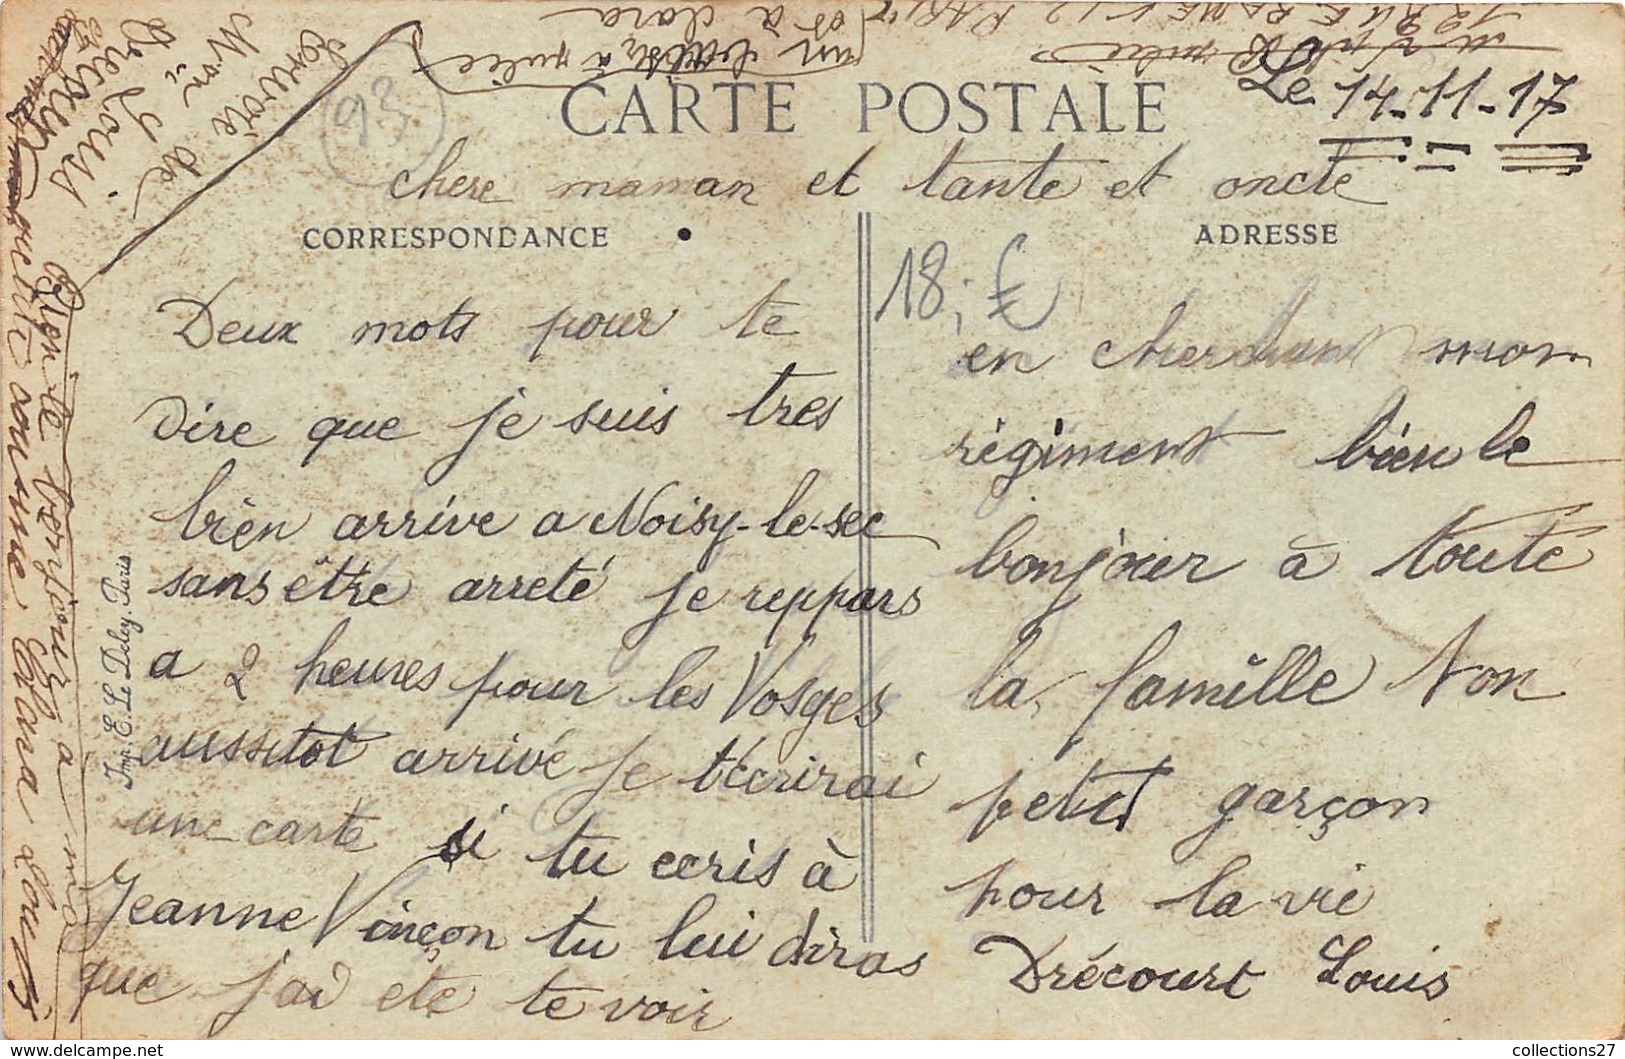 un baiser à
à clara
CARTE POSTALE
Le 14-11-17
93
chere maman et tante et oncle
CORRESPONDANCE
ADRESSE
18,- €
Deux mots pour te
dire que je suis tres
bien arrive a Noisy-le-sec
sans être arreté je reppars
a 2 heures pour les Vosges
aussitot arrivé je t'écrirai
une carte si tu ecris à
Jeanne Vinçon tu lui diras
que j'ai ete te voir
en cherchant mon
régiment bien le
bonjour à toute
la famille ton
petit garçon
pour la vie
Drécourt Louis
Envoie de
Mon
Louis
Bien le bonjour a ma
Clara Louis
Imp. E. Le Deley, Paris
collections27